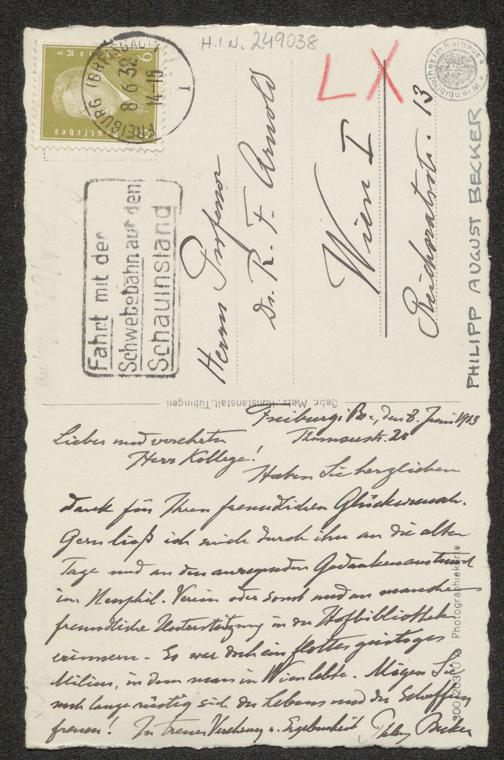 H.I.N. 249038
LX
FREIBURG (BREISGAU)
8.6.32
14-15
Fahrt mit der
Schwebebahn auf den
Schauinsland
Herrn Professor
Dr. R. F. Arnold
Wien I
Reichsratsstr. 13
PHILIPP AUGUST BECKER
Gebr. Metz, Kunstanstalt, Tübingen
Photographiekarte
Freiburg i. Br., den 8. Juni
Lieber und verehrter
Herr Kollege!
Haben Sie herzlichen
Dank für Ihren freundlichen Glückwunsch.
Gern ließ ich mich durch ihn an die alten
Tage und an den anregenden Gedankenaustausch
im Neuphil. Verein oder sonst und an manche
freundliche Unterstützung in der Hofbibliothek
erinnern. Es war doch ein flottes geistiges
Milieu, in dem man in Wien lebte. Mögen Sie
noch lange rüstig sich des Lebens und des Schaffens
freuen! In treuer Verehrung u. Ergebenheit Becker